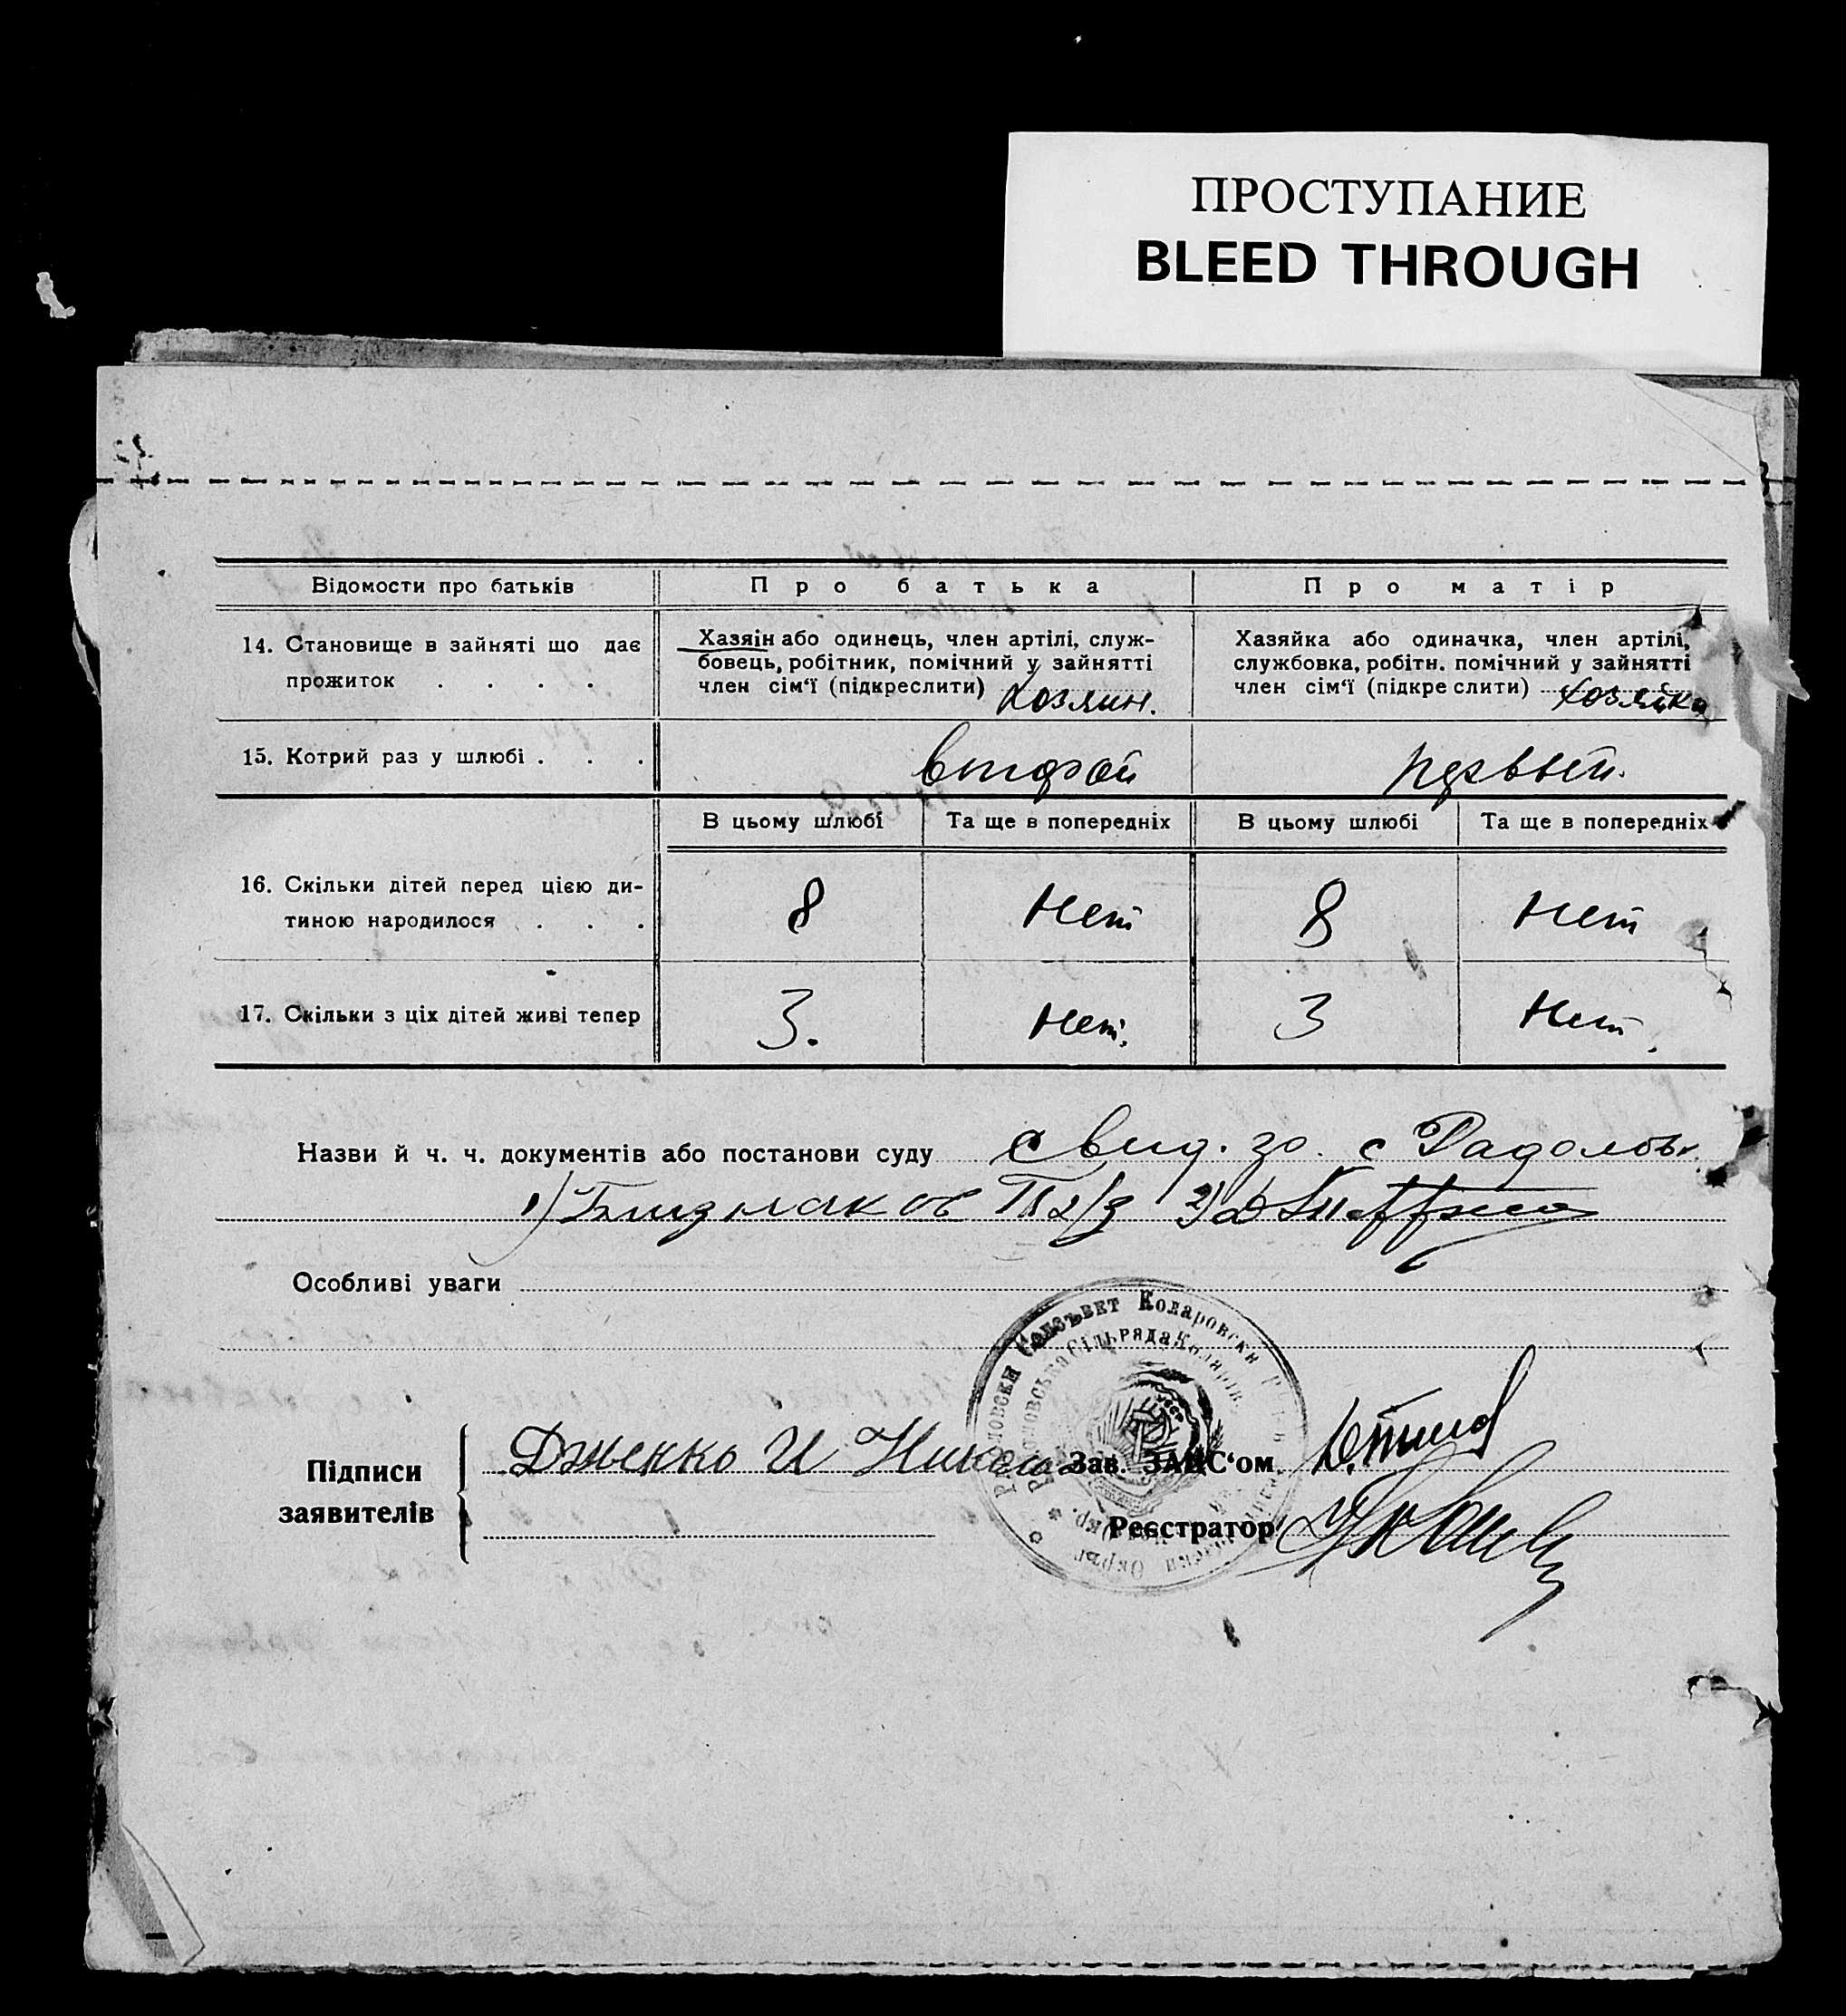 ПРОСТУПАНИЕ
BLEED THROUGH
Відомости про батьків
Про батька
Про матір
14. Становище в зайняті що дає
прожиток . . . .
Хазяін або одинець, член артілі, служ-
бовець, робітник, помічний у зайнятті
член сім‘ї (підкреслити) хозяин.
Хазяйка або одиначка, член артілі,
службовка, робітн. помічний у зайнятті
член сім‘ї (підкреслити) хозяйка
15. Котрий раз у шлюбі . . .
второй
первый.
В цьому шлюбі
Та ще в попередніх
В цьому шлюбі
Та ще в попередніх
16. Скільки дітей перед цією ди-
тиною народилося . . .
8
Нет
8
Нет
17. Скільки з ціх дітей живі тепер
3.
Нет.
3
Нет.
Назви й ч. ч. документів або постанови суду свид. с
1) Близнаков 2)
Особливі уваги
Сельзъвет Коларовски
Сільряда Коларів.
Окръг
Підписи
заявителів
Дженко И Никола
Зав. ЗАЦС‘ом
Реєстратор